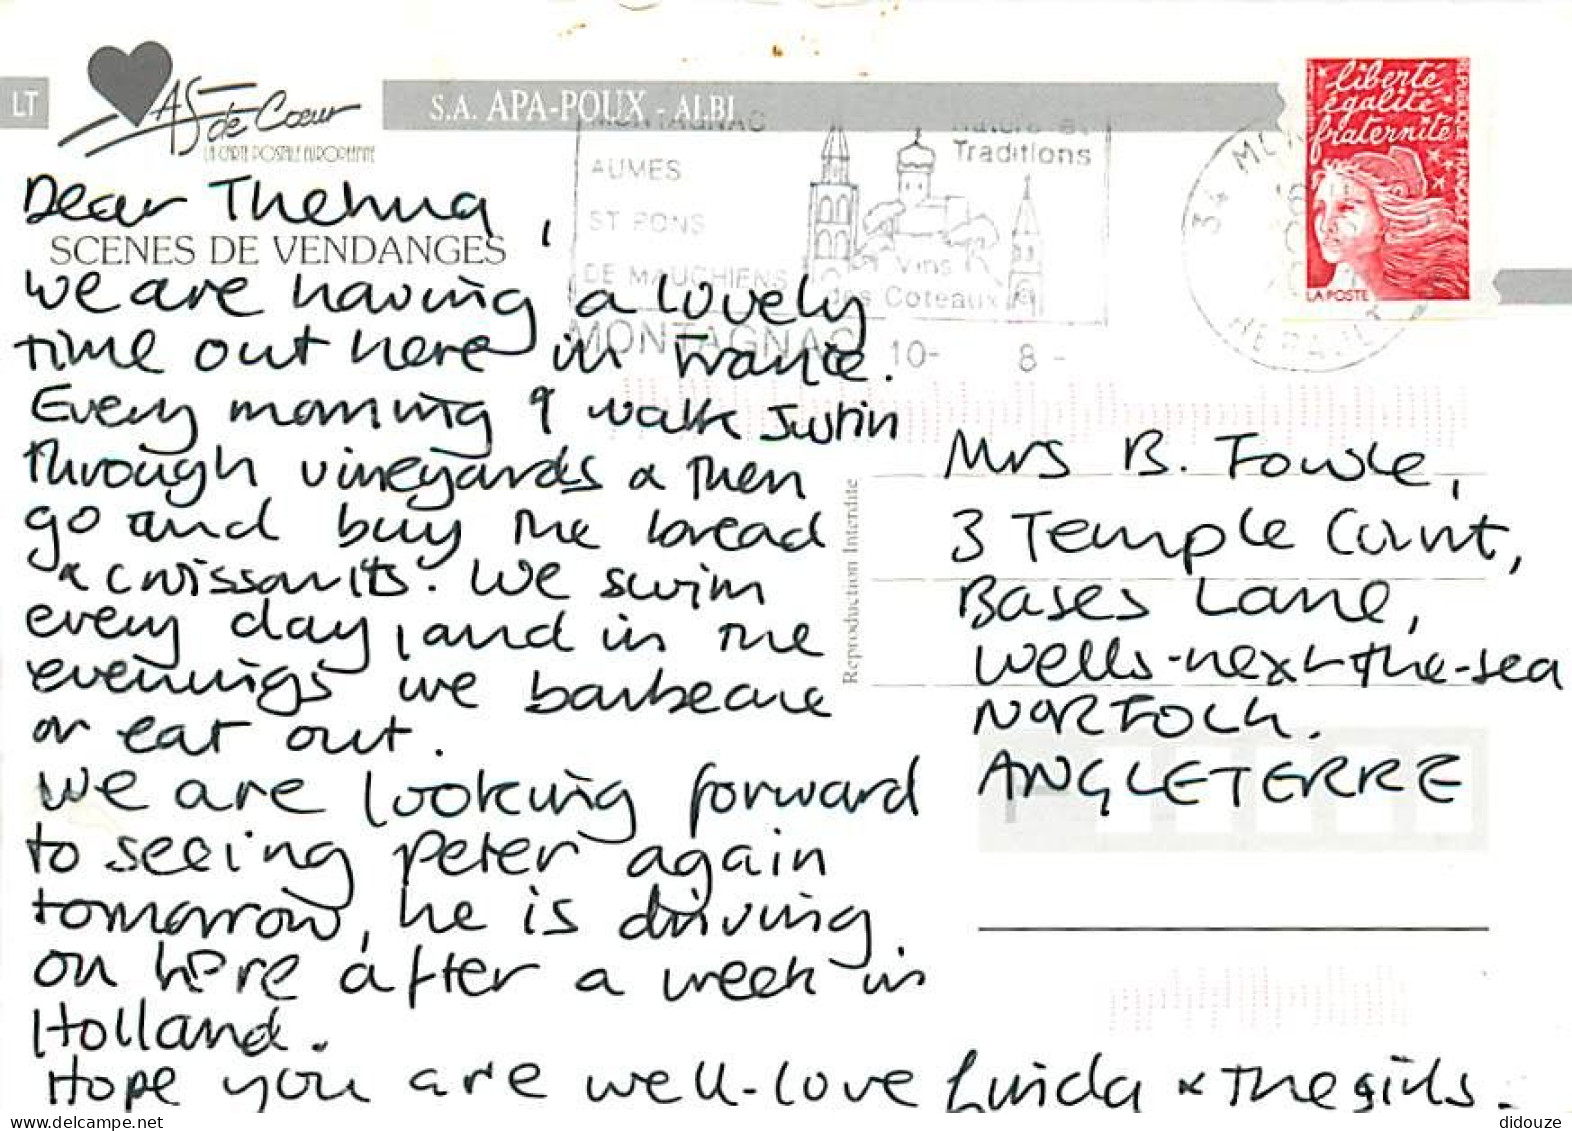 LT
As de Cœur
LA CARTE POSTALE EUROPEENNE
S.A. APA-POUX - ALBI
liberté
égalité
fraternité
REPUBLIQUE FRANÇAISE
LA POSTE
MONTAGNAC
AUMES
ST PONS
DE MAUCHIENS
MONTAGNAC
Nature et
Traditions
Vins
des Coteaux
10- 8-
34
HERAULT
Dear Thelma,
SCENES DE VENDANGES
We are having a lovely
time out here in France.
Every morning I walk Justin
through vineyards & then
go and buy the bread
& croissants. We swim
every day, and in the
evenings we barbecue
or eat out.
We are looking forward
to seeing Peter again
tomorrow, he is driving
on here after a week in
Holland.
Hope you are well - love Linda & the girls.
Reproduction Interdite
Mrs B. Fowle,
3 Temple Court,
Bases Lane,
Wells-next-the-sea
NORFOLK.
ANGLETERRE
didouze